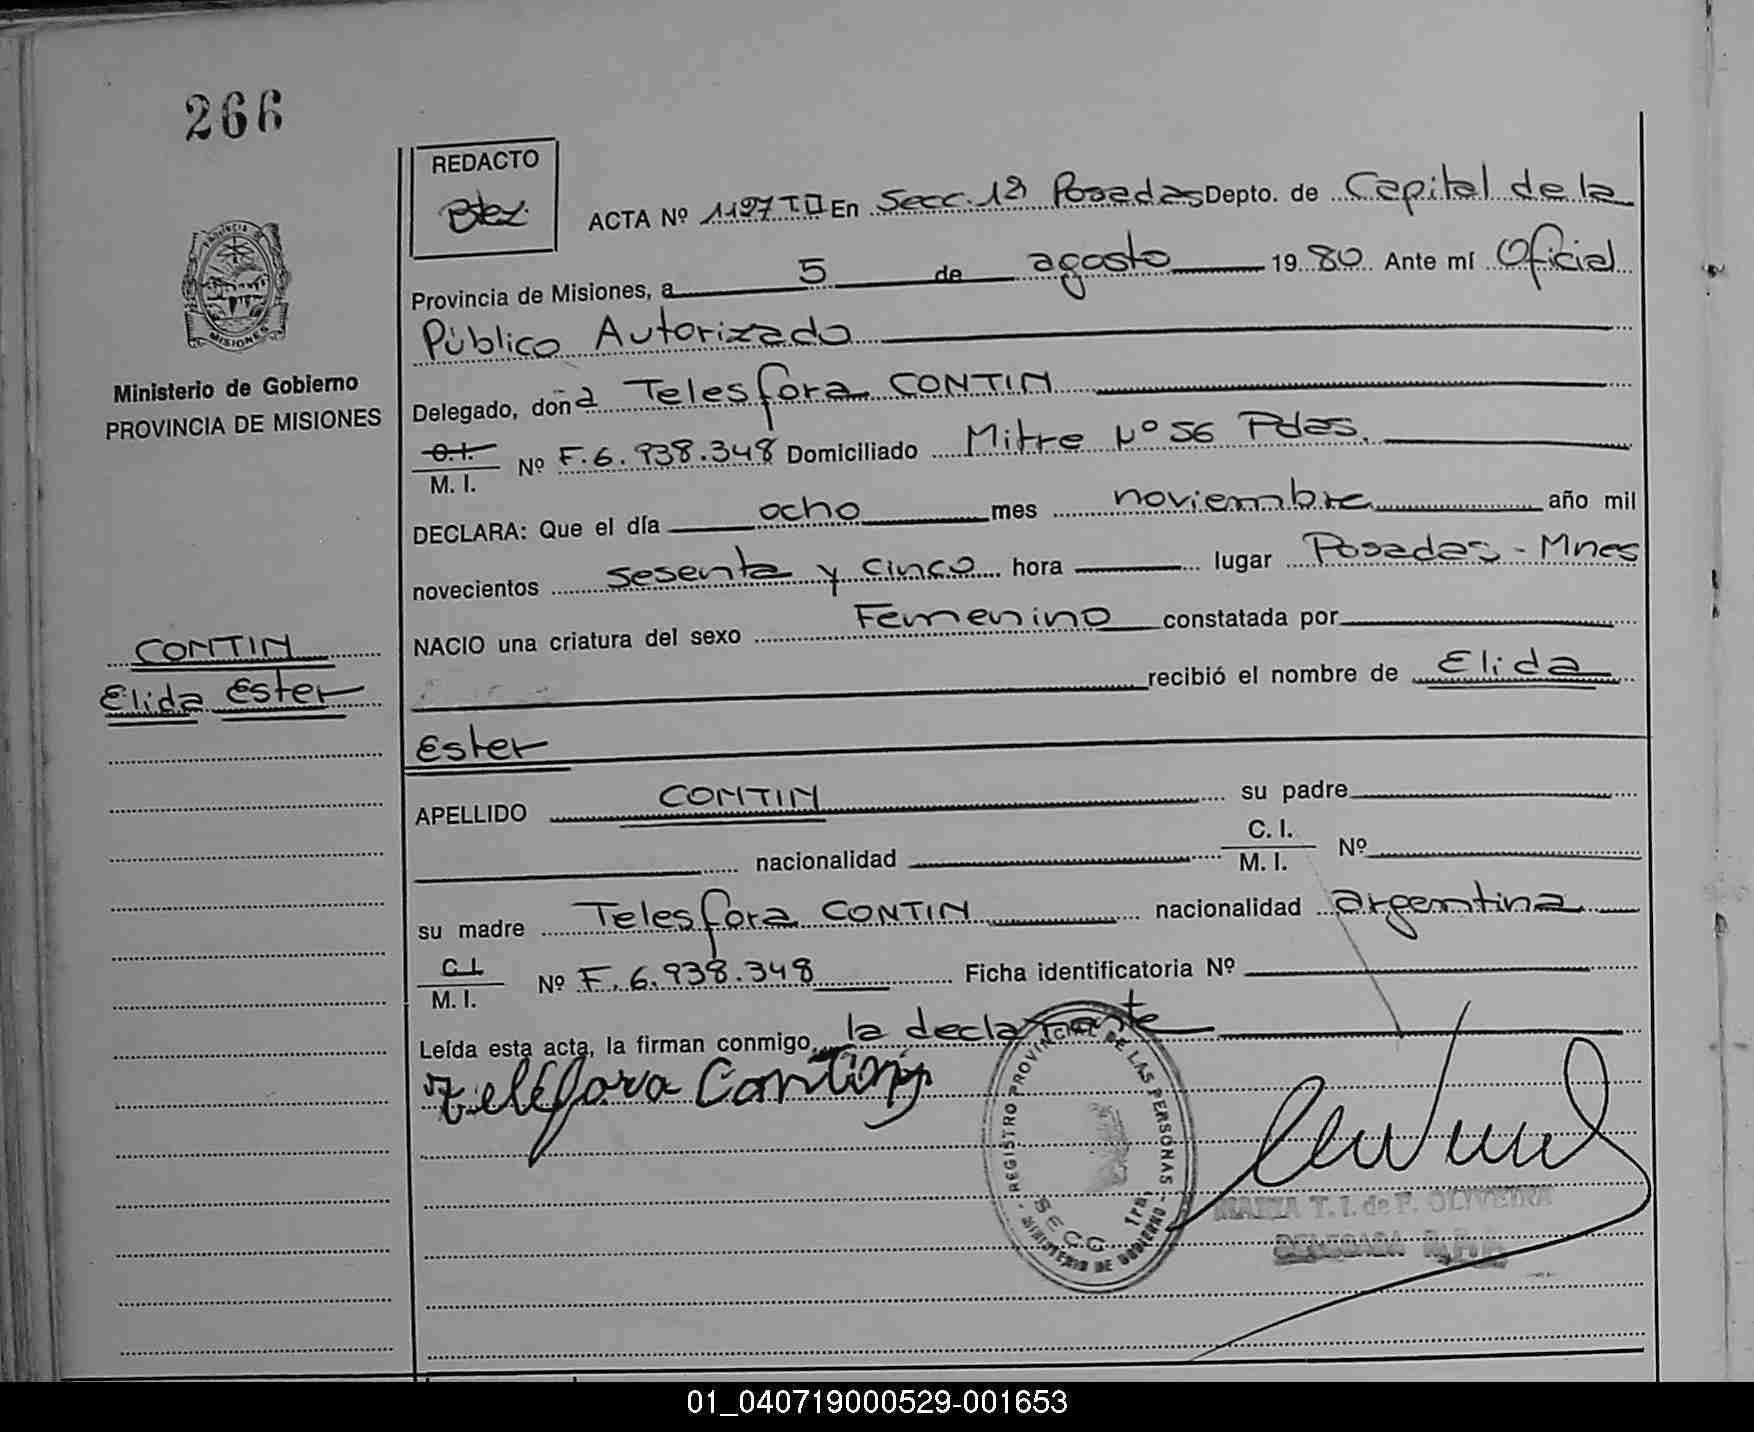 266
REDACTO
ACTA Nº 1197 T.II En Secc. 1ª Posadas Depto. de Capital de la
Provincia de Misiones, a 5 de agosto 1980 Ante mí Oficial
Público Autorizado
Delegado, doña Telesfora CONTIN
C.I. M. I. Nº F.6.938.348 Domiciliado Mitre Nº 56 Pdas.
DECLARA: Que el día ocho mes noviembre año mil
novecientos sesenta y cinco hora lugar Posadas - Mnes
NACIO una criatura del sexo Femenino constatada por
recibió el nombre de Elida
Ester
APELLIDO CONTIN su padre
nacionalidad C. I. M. I. Nº
su madre Telesfora CONTIN nacionalidad argentina
C.I. M. I. Nº F. 6.938.348 Ficha identificatoria Nº
Leída esta acta, la firman conmigo, la declarante
PROVINCIA
MISIONES
Ministerio de Gobierno
PROVINCIA DE MISIONES
CONTIN
Elida Ester
REGISTRO PROVINCIAL DE LAS PERSONAS
SECC. 1ra.
MINISTERIO DE GOBIERNO
T. I. de F. OLIVEIRA
DELEGADA
01_040719000529-001653